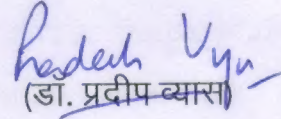 Pradeek Vyas
(डॉ. प्रदीप व्यास)